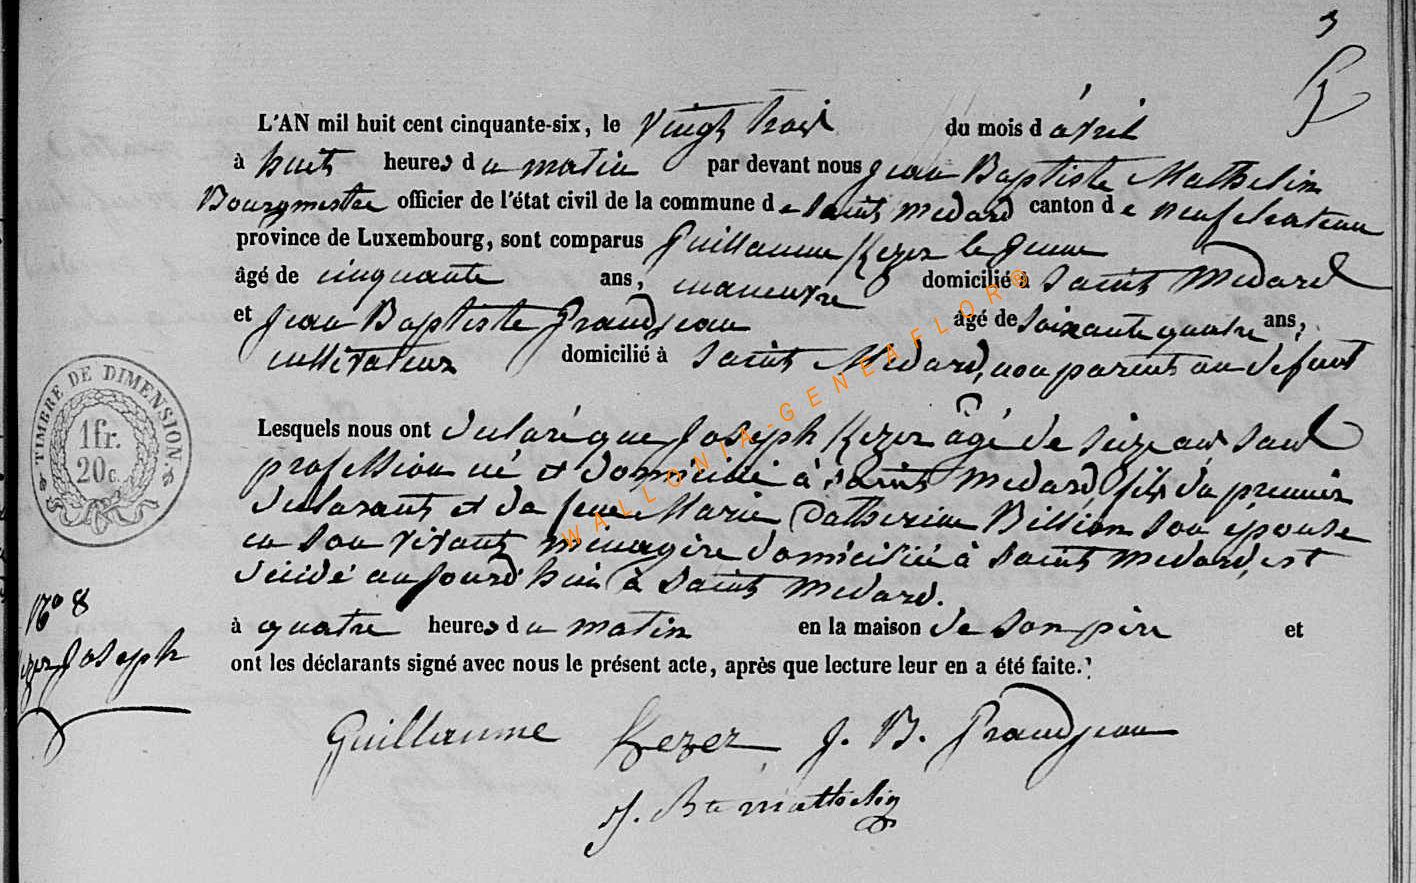 3
L'AN mil huit cent cinquante-six, le vingt trois du mois d'avril
à huit heures du matin par devant nous Jean Baptiste Mathelin
Bourgmestre officier de l'état civil de la commune de Saint Medard canton de neufchateau
province de Luxembourg, sont comparus Guillaume Kezer le jeune
âgé de cinquante ans, manœuvre domicilié à Saint Medard
et Jean Baptiste Grandjean âgé de soixante quatre ans,
cultivateur domicilié à Saint Médard, non parent au defunt
Lesquels nous ont declaré que Joseph Kezer âgé de seize ans sans
profession né et domicilié à Saint Medard fils du premier
declarant et de feue Marie Catherine Billion son épouse
en son vivant ménagère domiciliée à Saint Medard, est
décidé aujourd'hui à Saint Medard.
à quatre heures du matin en la maison de son père et
ont les déclarants signé avec nous le présent acte, après que lecture leur en a été faite.
TIMBRE DE DIMENSION.
1 fr.
20 c.
N° 8
Kezer Joseph
Guillaume Kezer J. B. Grandjean
J. Bte mathelin
WALLONIA-GENEAFLOR®